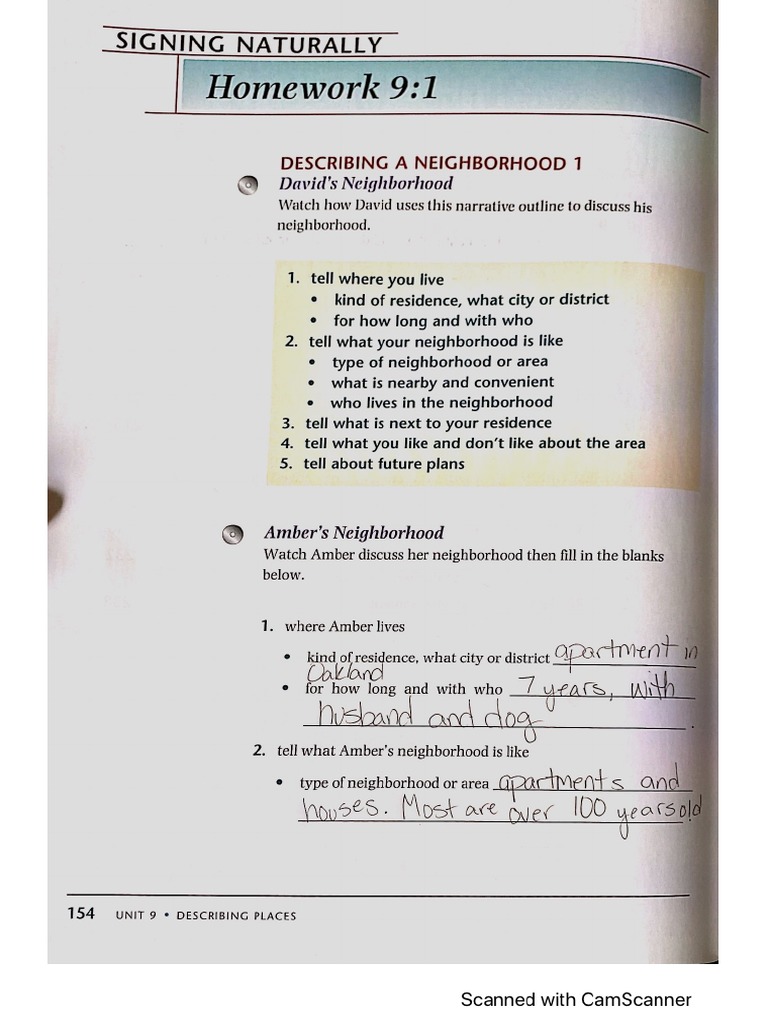 SIGNING NATURALLY
Homework 9:1
DESCRIBING A NEIGHBORHOOD 1
David's Neighborhood
Watch how David uses this narrative outline to discuss his
neighborhood.
1. tell where you live
• kind of residence, what city or district
• for how long and with who
2. tell what your neighborhood is like
• type of neighborhood or area
• what is nearby and convenient
• who lives in the neighborhood
3. tell what is next to your residence
4. tell what you like and don't like about the area
5. tell about future plans
Amber's Neighborhood
Watch Amber discuss her neighborhood then fill in the blanks
below.
1. where Amber lives
• kind of residence, what city or district apartment in
Oakland
• for how long and with who 7 years, with
husband and dog.
2. tell what Amber's neighborhood is like
• type of neighborhood or area apartments and
houses. Most are over 100 years old
154 UNIT 9 • DESCRIBING PLACES
Scanned with CamScanner